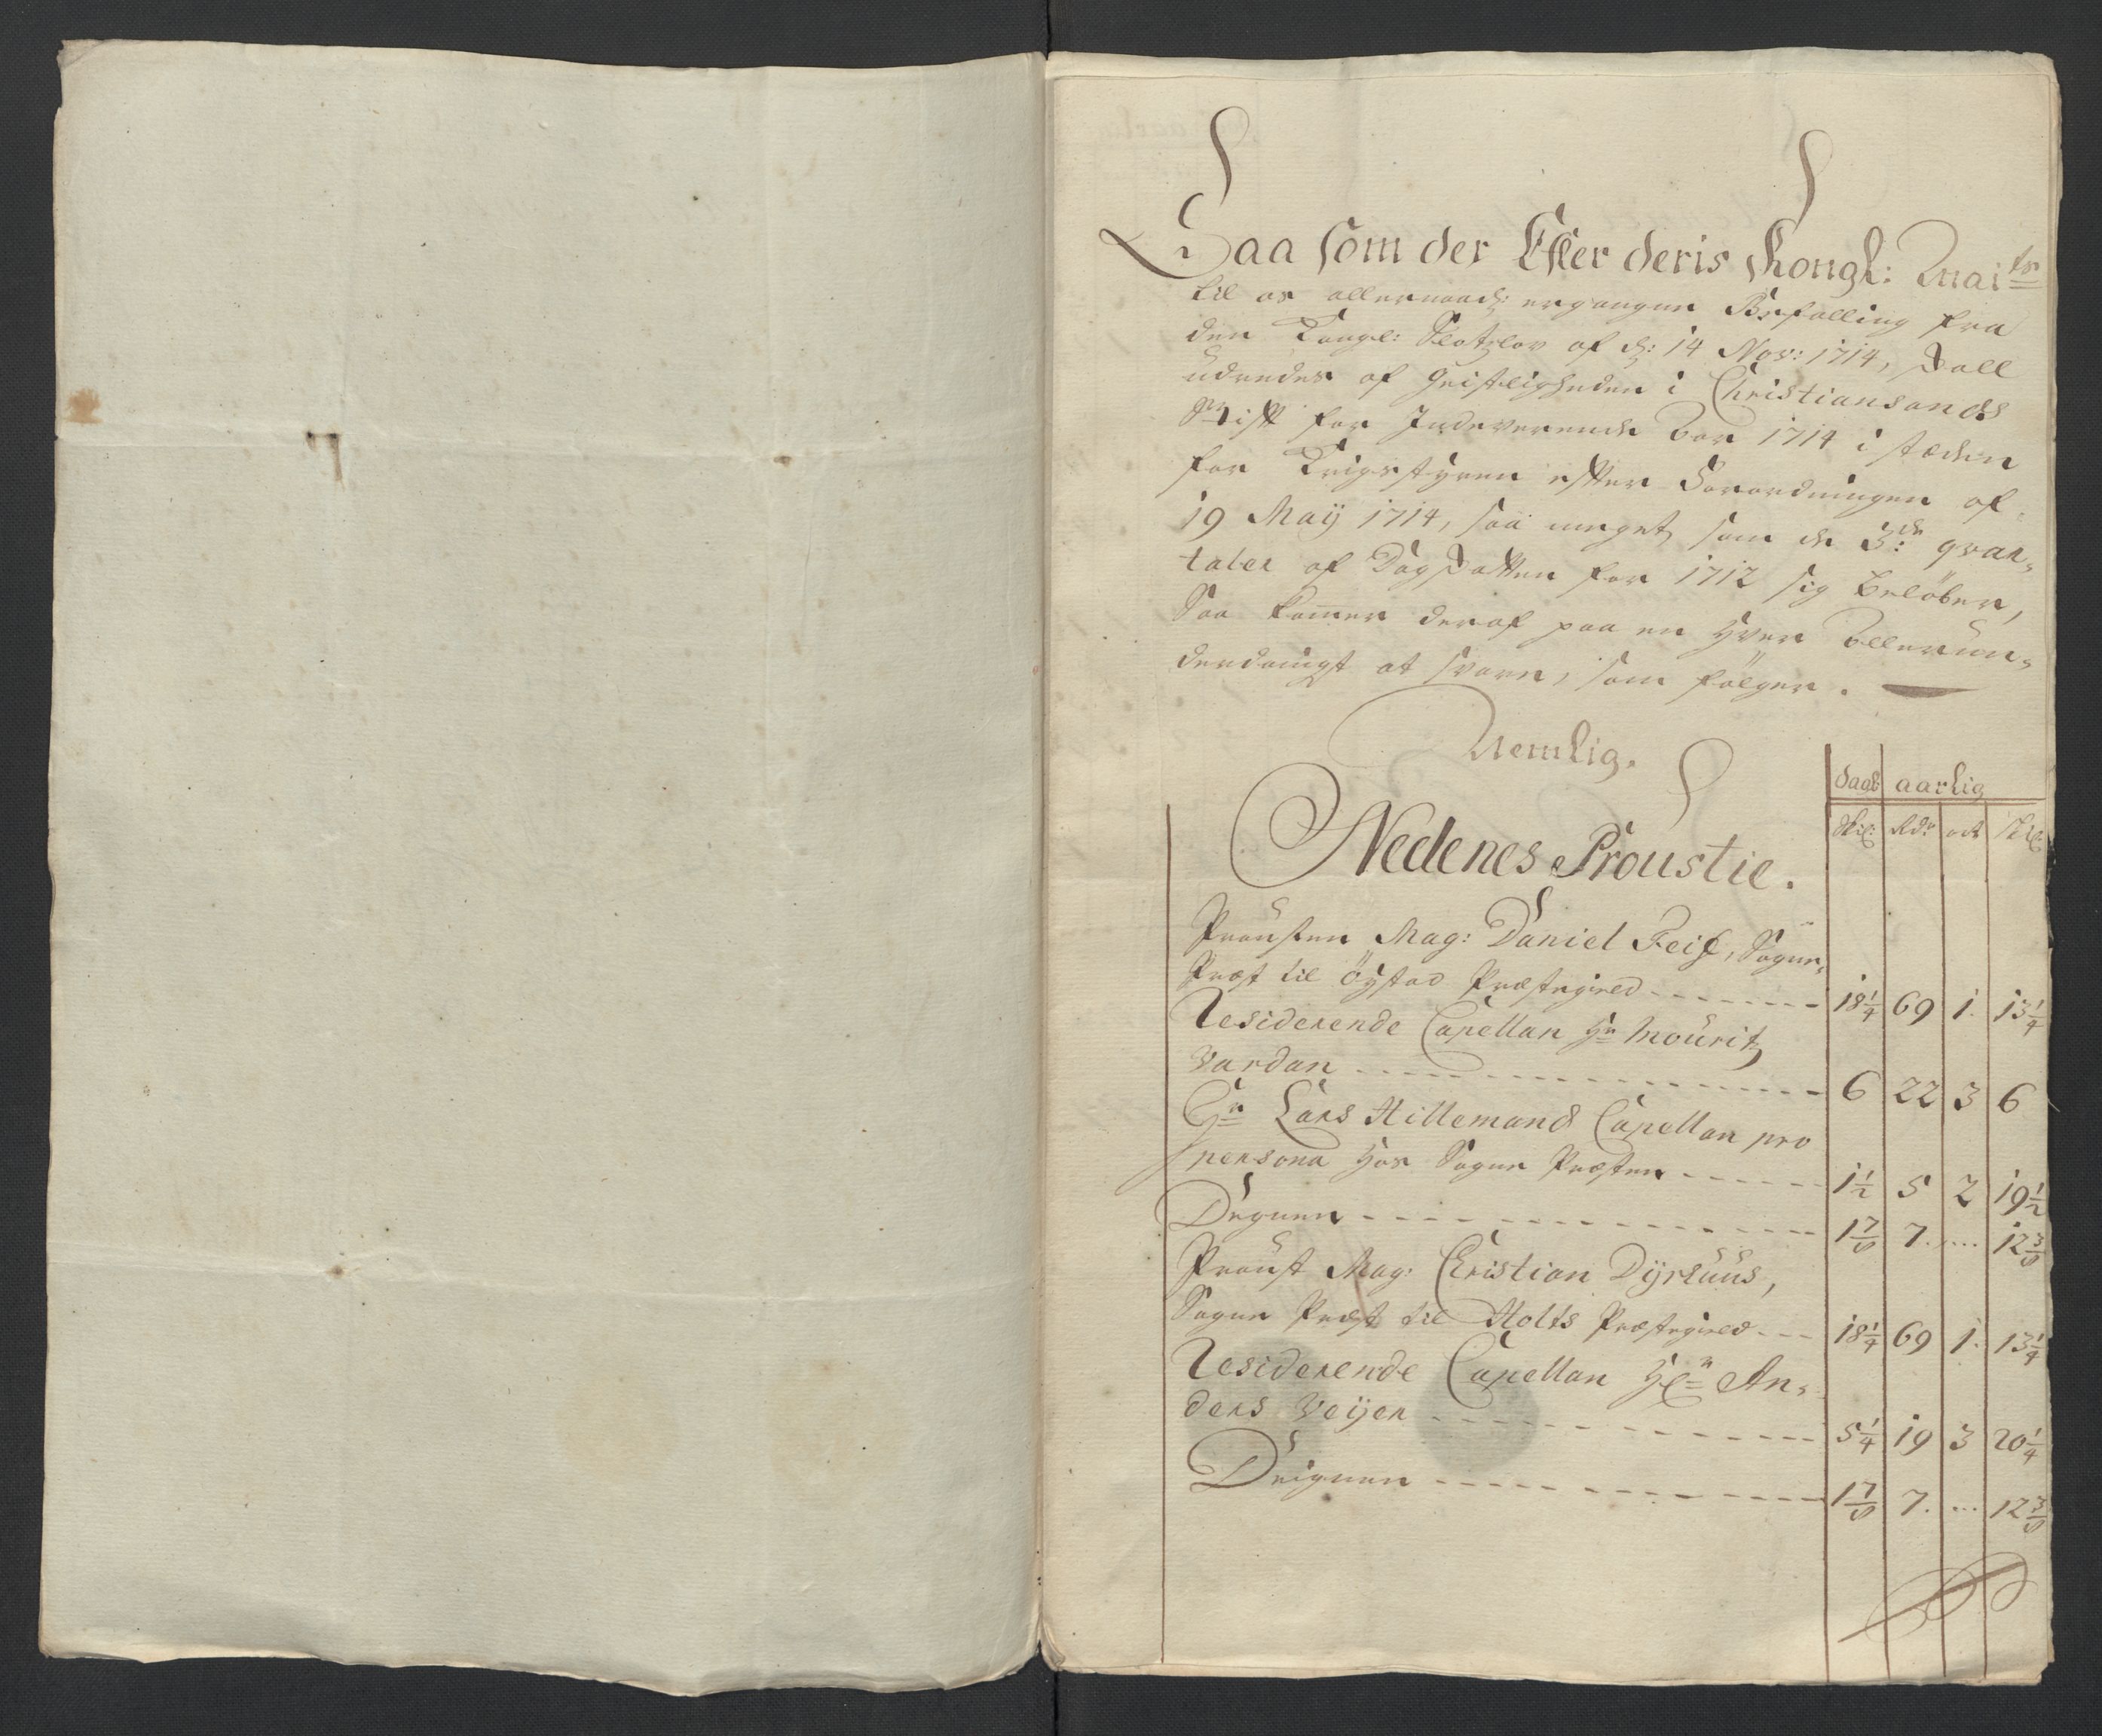 Saa som der Efter deris Kongl: Mai<sup>ts</sup>
til os allernaad: ergangne Befalling fra
den Kongl: Slotzlov af d: 14 Nov: 1714, skall
udredes af Geistligheden i Christiansands
Stift for Indeverende Aar 1714 i stæden
for Krigsstyren efter Forordningen af
19 Maij 1714, saa meget som de 3<sup>de</sup> qvar-
taler af Dagskatten for 1712 sig beløber,
Saa komer deraf paa en hver allerun-
derdanigst at svare, som følger.
Nemlig.
dagl: aarlig
Skil: Rdr ort Skil:
Nedenes Proustie.
Prousten Mag: Daniel Feif, Sogne-
Præst til Öystad Præstegield - - - 18 1/4 69 1. 13 1/4
Residerende Capellan Hr Mouritz
Vardan - - - 6 22 3 6
Hr Lars Hillemand Capellan pro
persona hos Sogne Præsten - - - 1 1/2 5 2 19 1/2
Degnen - - - 1 7/8 7. ... 12 3/8
Proust Mag: Christian Dyrkuus,
Sogne Præst til Holts Præstegield - - - 18 1/4 69 1. 13 1/4
Residerende Capellan Hr An-
ders Veijer - - - 5 1/4 19 3 20 1/4
Deignen - - - 1 7/8 7. ... 12 3/8